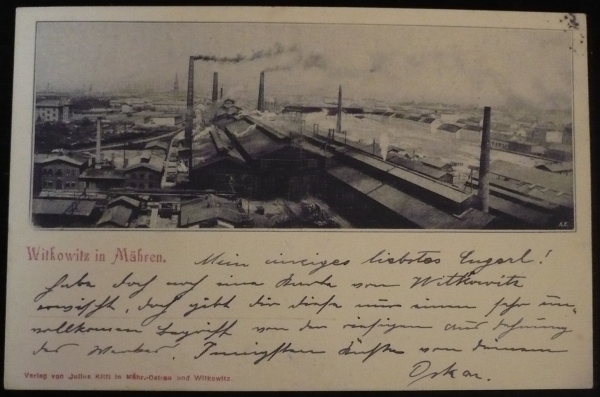 A.E.
Witkowitz in Mähren.
Mein einziges liebstes Engerl!
habe doch noch eine Karte von Witkowitz
erwischt, doch gibt dir diese nur einen sehr un-
vollkommen Begriff von der riesigen Ausdehnung
der Werke. Innigsten von deinem
Oskar.
Verlag von Julius Kittl in Mähr.-Ostrau und Witkowitz.